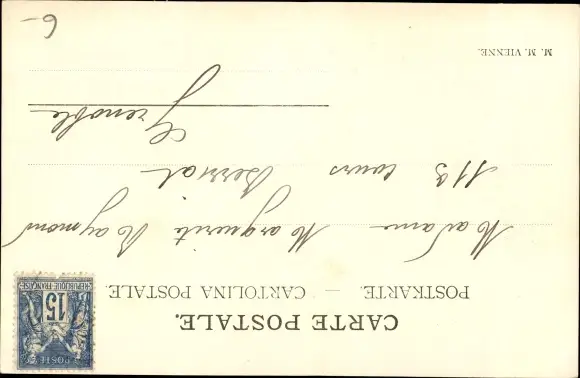 CARTE POSTALE.
POSTKARTE. — CARTOLINA POSTALE.
POSTES
15
RÉPUBLIQUE FRANÇAISE
Madame Marguerite Raymond
113 cours Berriat
Grenoble
M. M. VIENNE.
6-